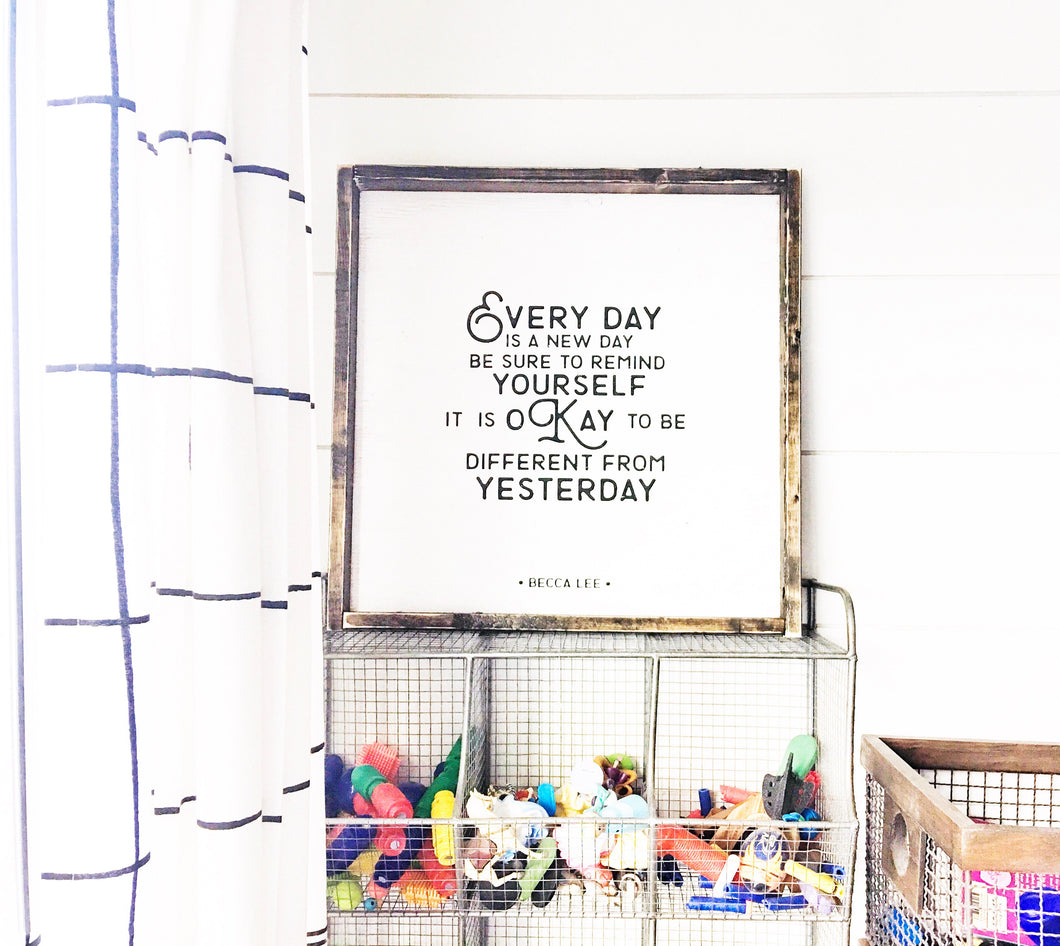 EVERY DAY
IS A NEW DAY
BE SURE TO REMIND
YOURSELF
IT IS OKAY TO BE
DIFFERENT FROM
YESTERDAY
• BECCA LEE •